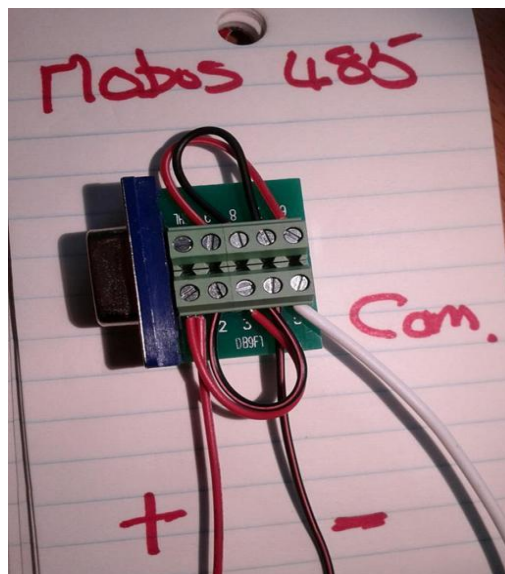 Mobus 485
8 9
2 3
DB9F1
Com.
+ -